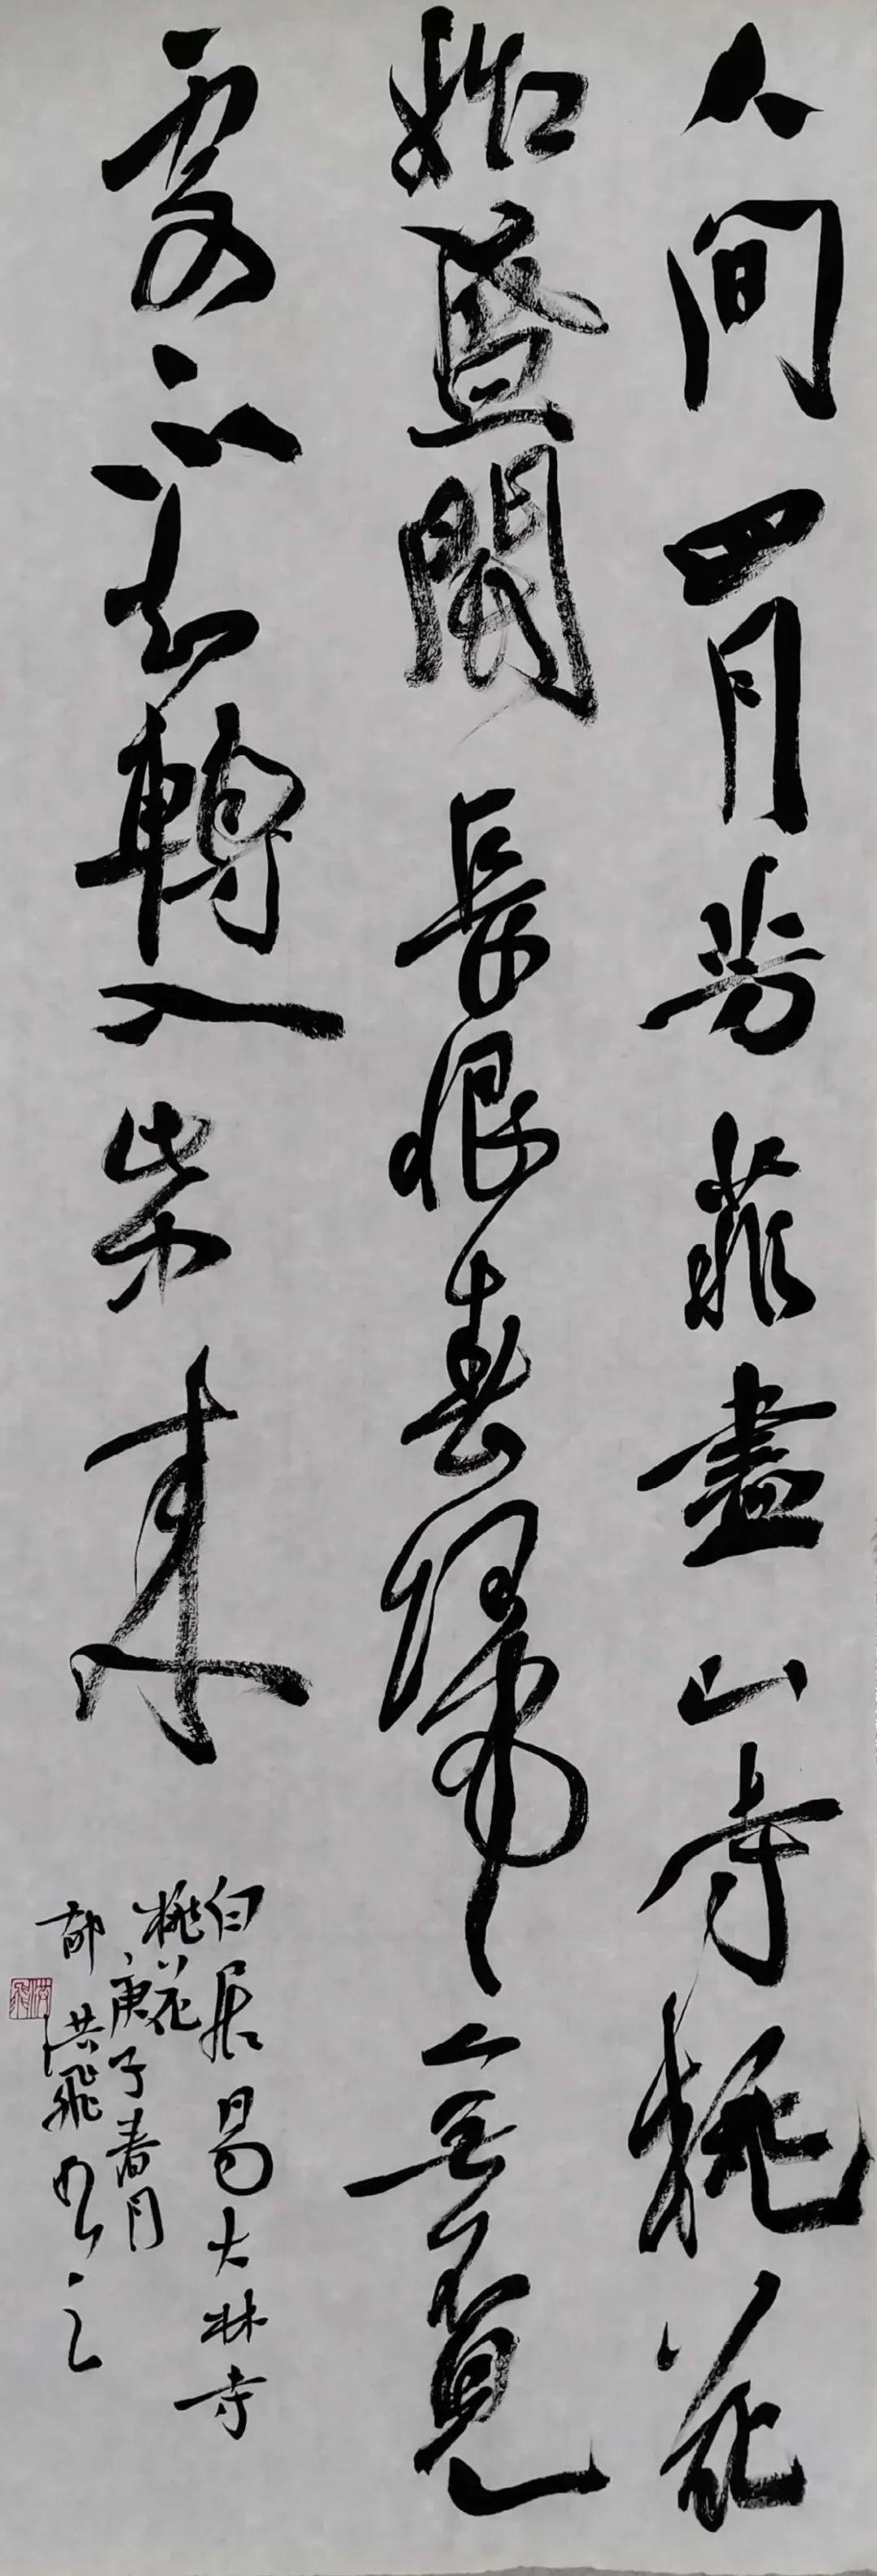 人间四月芳菲盡山寺桃花
始盛開長恨春歸無覓
處不知轉入此中来
白居易大林寺
桃花
庚子春月
郁洪飛书之